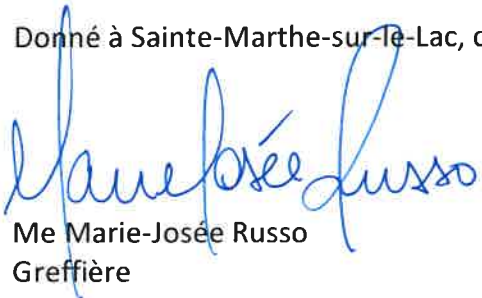 Donné à Sainte-Marthe-sur-le-Lac, c
Marie Josée Russo
Me Marie-Josée Russo
Greffière